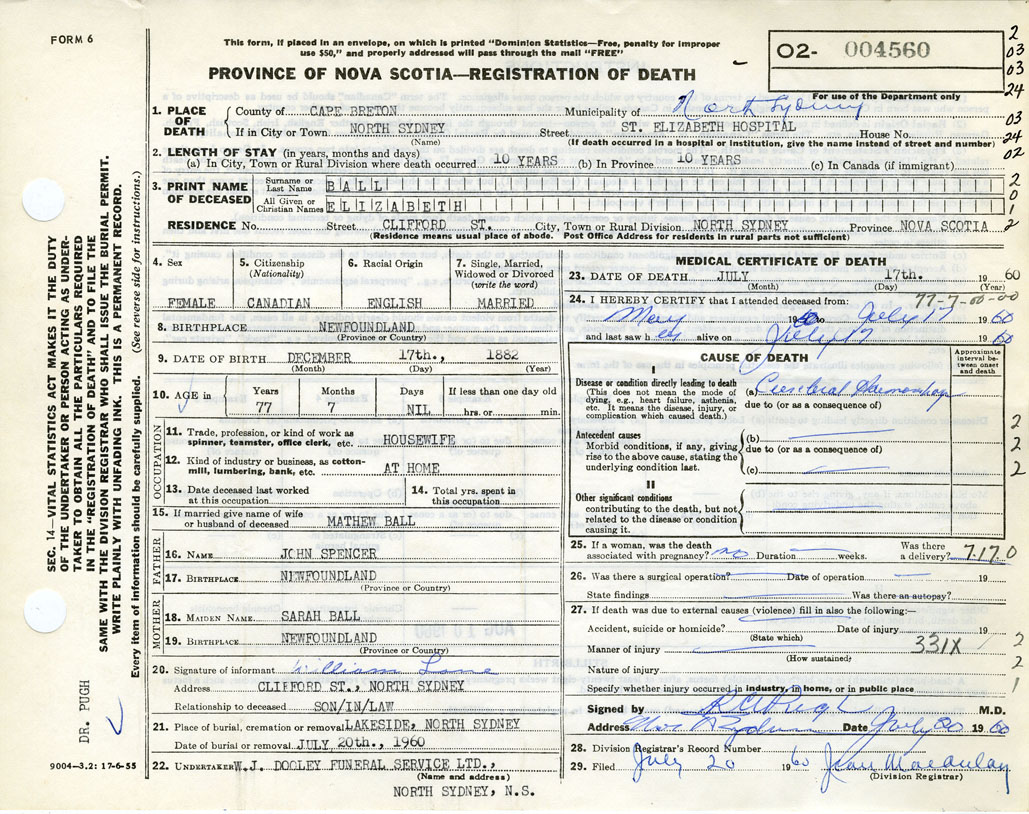 FORM 6
This form, if placed in an envelope, on which is printed "Dominion Statistics—Free, penalty for improper
use $50," and properly addressed will pass through the mail "FREE"
PROVINCE OF NOVA SCOTIA—REGISTRATION OF DEATH
02- 004560
For use of the Department only
2
03
03
24
03
24
02
2
0
1
2
1. PLACE OF DEATH
County of CAPE BRETON Municipality of North Sydney
If in City or Town NORTH SYDNEY Street ST. ELIZABETH HOSPITAL House No.
(Name) (If death occurred in a hospital or Institution, give the name instead of street and number)
2. LENGTH OF STAY (in years, months and days)
(a) In City, Town or Rural Division where death occurred 10 YEARS (b) In Province 10 YEARS (c) In Canada (if immigrant)
3. PRINT NAME OF DECEASED
Surname or Last Name BALL
All Given or Christian Names ELIZABETH
RESIDENCE No. Street CLIFFORD ST. City, Town or Rural Division NORTH SYDNEY Province NOVA SCOTIA
(Residence means usual place of abode. Post Office Address for residents in rural parts not sufficient)
4. Sex
FEMALE
5. Citizenship
(Nationality)
CANADIAN
6. Racial Origin
ENGLISH
7. Single, Married, Widowed or Divorced
(write the word)
MARRIED
8. BIRTHPLACE NEWFOUNDLAND
(Province or Country)
9. DATE OF BIRTH DECEMBER 17th., 1882
(Month) (Day) (Year)
10. AGE in
Years 77
Months 7
Days NIL
If less than one day old
hrs. or min.
OCCUPATION
11. Trade, profession, or kind of work as
spinner, teamster, office clerk, etc. HOUSEWIFE
12. Kind of industry or business, as cotton-
mill, lumbering, bank, etc. AT HOME
13. Date deceased last worked
at this occupation
14. Total yrs. spent in
this occupation
15. If married give name of wife
or husband of deceased MATHEW BALL
FATHER
16. NAME JOHN SPENCER
17. BIRTHPLACE NEWFOUNDLAND
(Province or Country)
MOTHER
18. MAIDEN NAME SARAH BALL
19. BIRTHPLACE NEWFOUNDLAND
(Province or Country)
20. Signature of informant William
Address CLIFFORD ST., NORTH SYDNEY
Relationship to deceased SON/IN/LAW
21. Place of burial, cremation or removal LAKESIDE, NORTH SYDNEY
Date of burial or removal JULY, 20th., 1960
22. UNDERTAKER W.J. DOOLEY FUNERAL SERVICE LTD.,
(Name and address)
NORTH SYDNEY, N.S.
MEDICAL CERTIFICATE OF DEATH
23. DATE OF DEATH JULY 17th. 1960
(Month) (Day) (Year)
77-7-00-00
24. I HEREBY CERTIFY that I attended deceased from:
May 1960 to July 17 1960
and last saw her alive on July 17 1960
CAUSE OF DEATH
Approximate interval between onset and death
I
Disease or condition directly leading to death
(This does not mean the mode of
dying, e.g., heart failure, asthenia,
etc. It means the disease, injury, or
complication which caused death.)
(a) Cerebral Haemorrhage
due to (or as a consequence of)
Antecedent causes
Morbid conditions, if any, giving
rise to the above cause, stating the
underlying condition last.
(b)
due to (or as a consequence of)
(c)
II
Other significant conditions
contributing to the death, but not
related to the disease or condition
causing it.
2
2
2
25. If a woman, was the death
associated with pregnancy? no Duration weeks. Was there
a delivery? 7.17.0
26. Was there a surgical operation? Date of operation 19
State findings Was there an autopsy?
27. If death was due to external causes (violence) fill in also the following:—
Accident, suicide or homicide? Date of injury 19
(State which)
Manner of injury 331X
(How sustained)
Nature of injury
Specify whether injury occurred in industry, in home, or in public place
2
2
1
Signed by R C Pugh M.D.
Address Date July 20 1960
28. Division Registrar's Record Number
29. Filed July 20 1960 Jean Macaulay
(Division Registrar)
SEC. 14—VITAL STATISTICS ACT MAKES IT THE DUTY
OF THE UNDERTAKER OR PERSON ACTING AS UNDER-
TAKER TO OBTAIN ALL THE PARTICULARS REQUIRED
IN THE "REGISTRATION OF DEATH" AND TO FILE THE
SAME WITH THE DIVISION REGISTRAR WHO SHALL ISSUE THE BURIAL PERMIT.
WRITE PLAINLY WITH UNFADING INK. THIS IS A PERMANENT RECORD.
Every item of information should be carefully supplied. (See reverse side for instructions.)
DR. PUGH
9004—3.2: 17-6-55